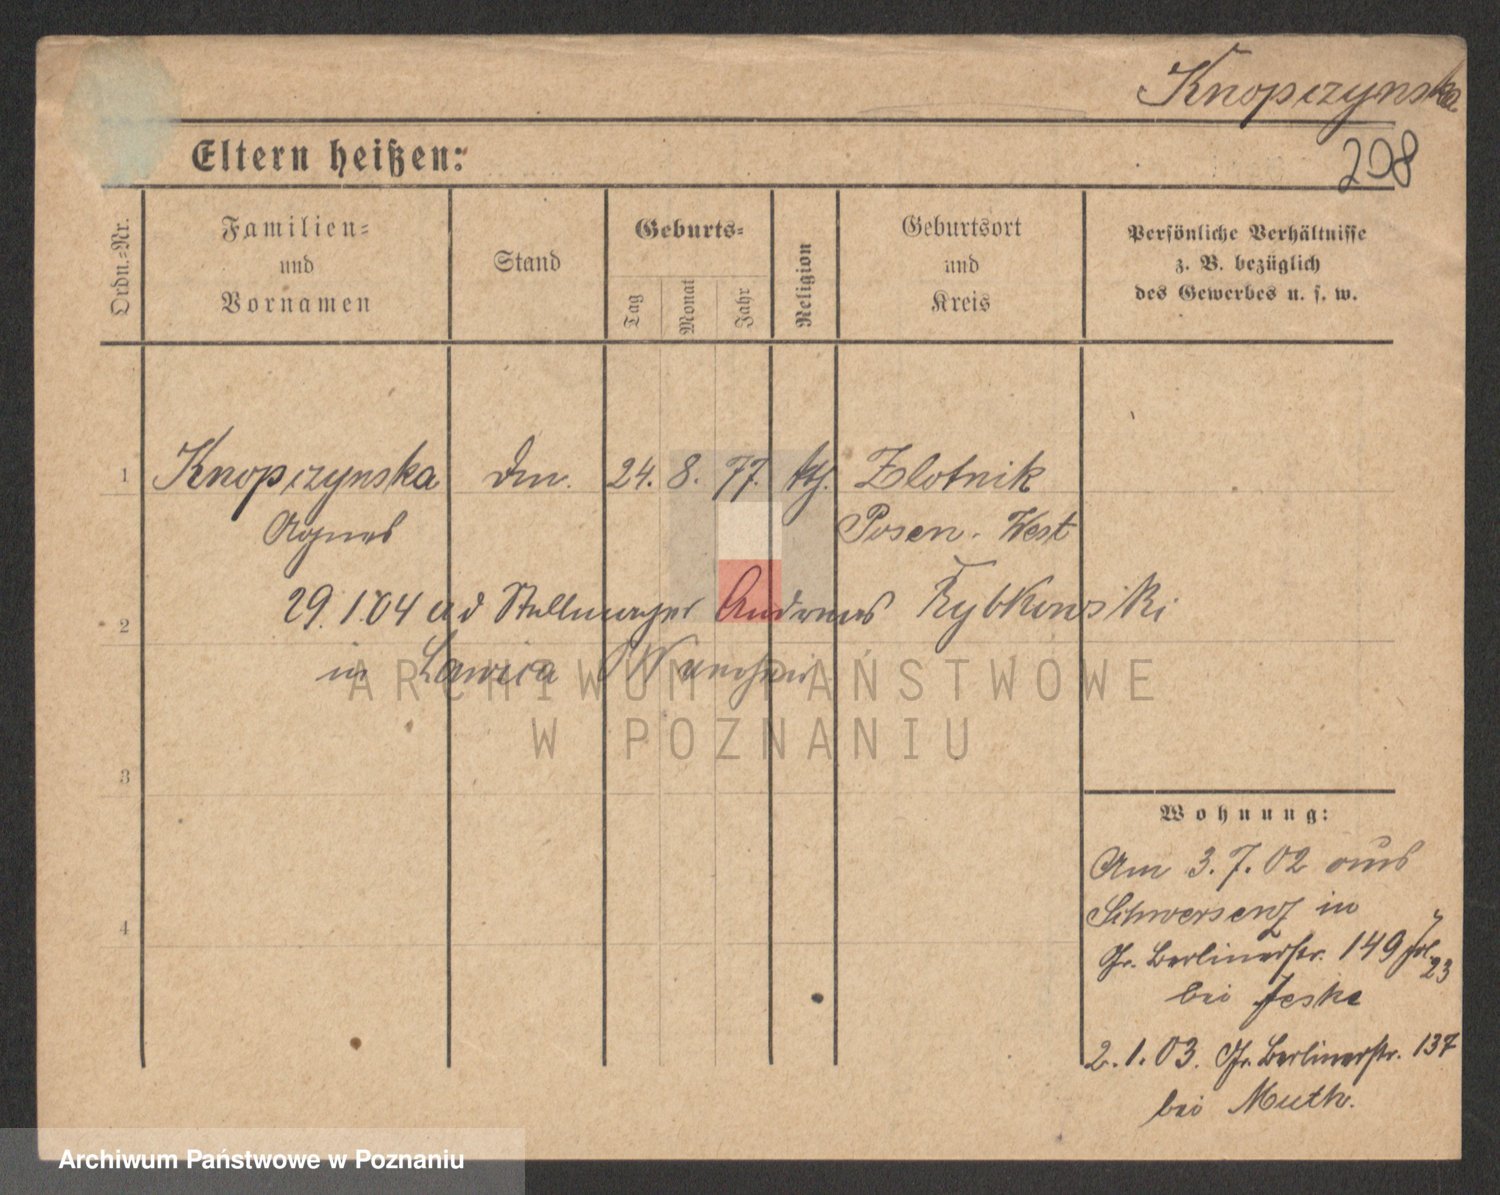 Knopczynska
208
Eltern heißen:
Ordn.-Nr.
Familien-
und
Vornamen
Stand
Geburts-
Tag
Monat
Jahr
Religion
Geburtsort
und
Kreis
Persönliche Verhältnisse
z. B. bezüglich
des Gewerbes u. s. w.
1 Knopczynska 24. 8. 77. kth. Zlotnik
Agnes Posen. West
29.1.04 Stellmacher Andreas Rybkowski
2
in Lawica
ARCHIWUM PAŃSTWOWE
W POZNANIU
3
Wohnung:
Am 3.7.02 aus
Schwersenz in
4
Gr. Berlinerstr. 149
23
bei Jeske
2.1.03. Gr. Berlinerstr. 137
bei Muth.
Archiwum Państwowe w Poznaniu